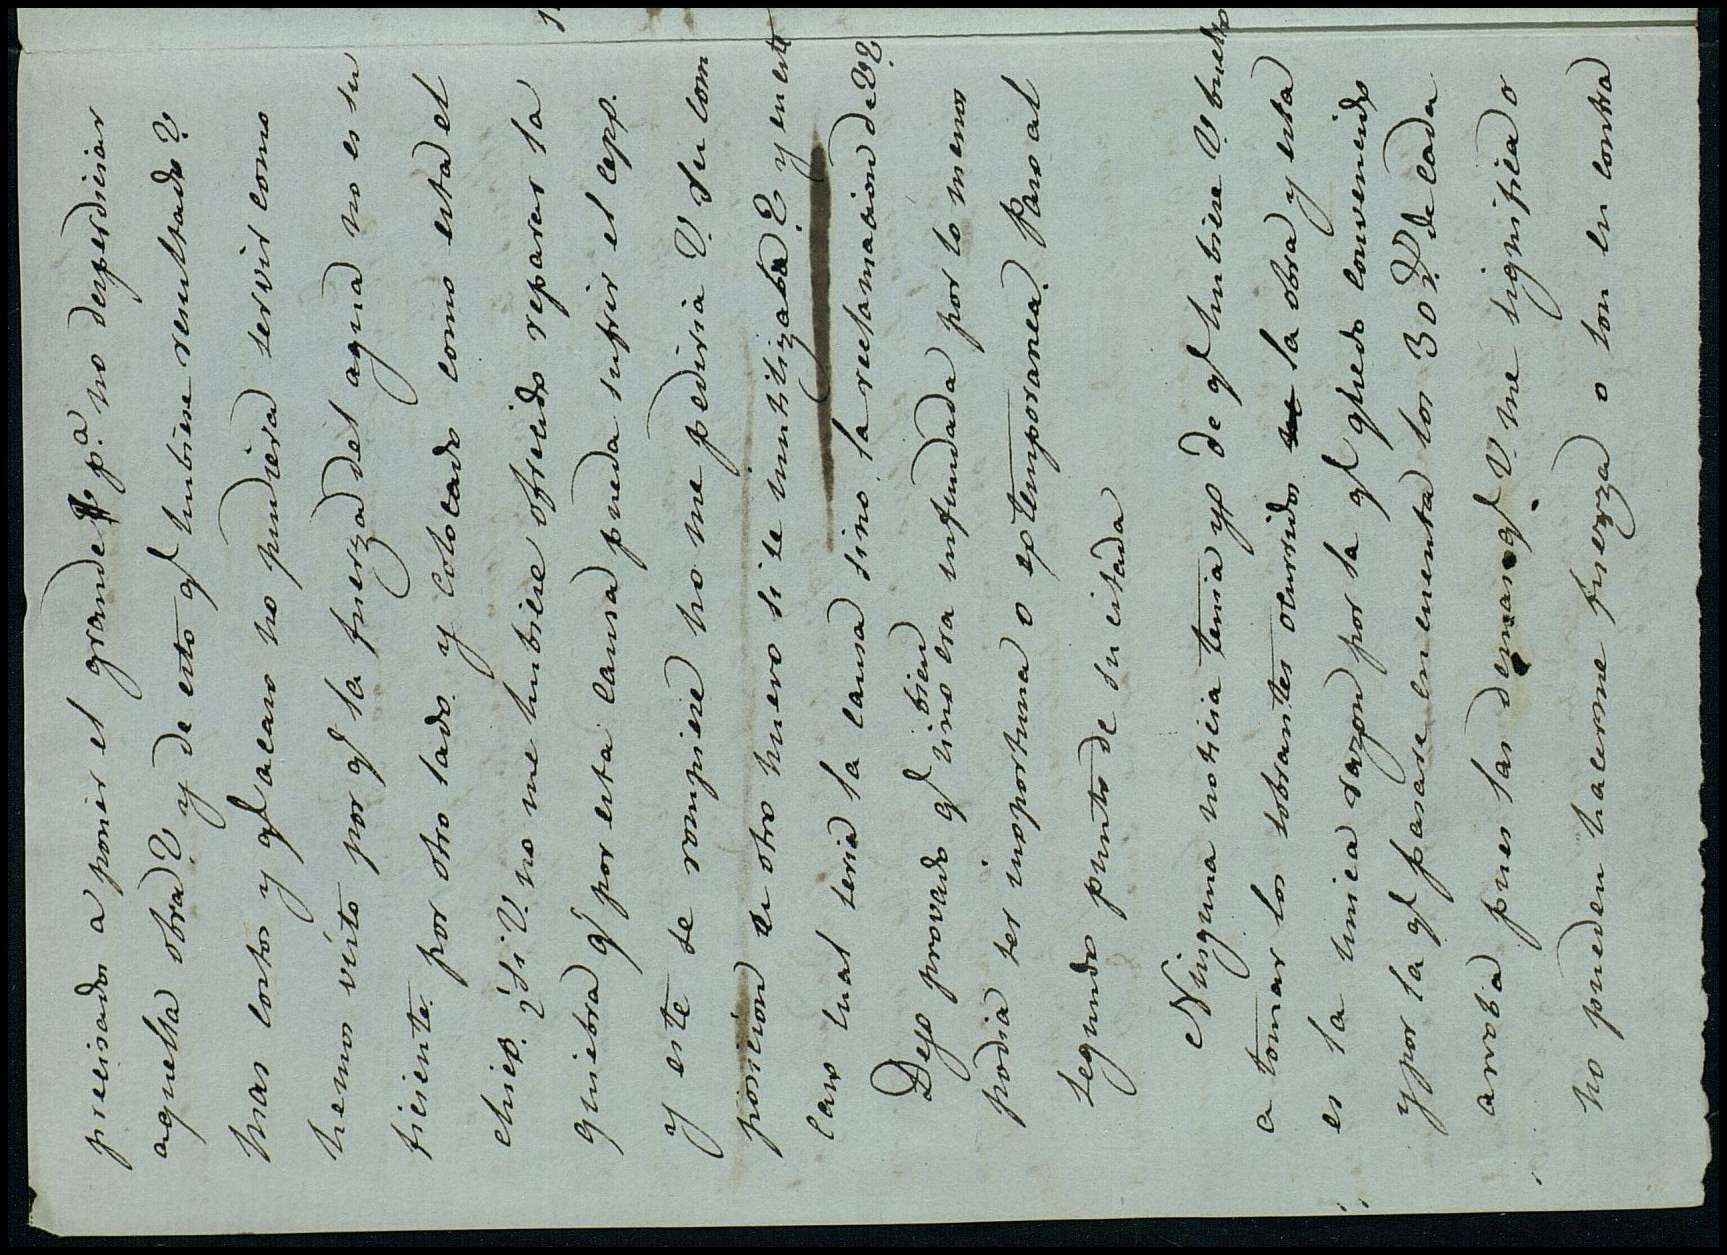 precisados a poner el grande p.ª no desperdiciar
aquella obra? y de esto qᵉ hubiere resultado?
mas costos y qᵉ acaso no pudiera servir como
hemos visto por qᵉ la fuerza del agua no es su
ficiente. por otro lado y colocado como está el
chico. ¿si V. no me hubiere ofrecido reparar la
quiebra qᵉ por esta causa pueda sufrir el cepp.
y este se rompiere no me pediria V. su com
posicion u otro nuevo si se inutilizaba? y en este
caso cual seria la causa sino la reclamacion de V?
Dejo provado qᵉ si bien no era infundada por lo menos
podia ser inoportuna o extemporanea. Paso al
segundo punto de su citada
Ninguna noticia tenia yo de qᵉ hubiese V. buelto
a tomar los sobrantes ocurridos la obra y esta
es la unica razon por la qᵉ quedo convencido
y por la qᵉ pasase en cuenta los 30 de cada
arroba pues las demas qᵉ V. me significa o
no pueden hacerme fuerza o son en contra